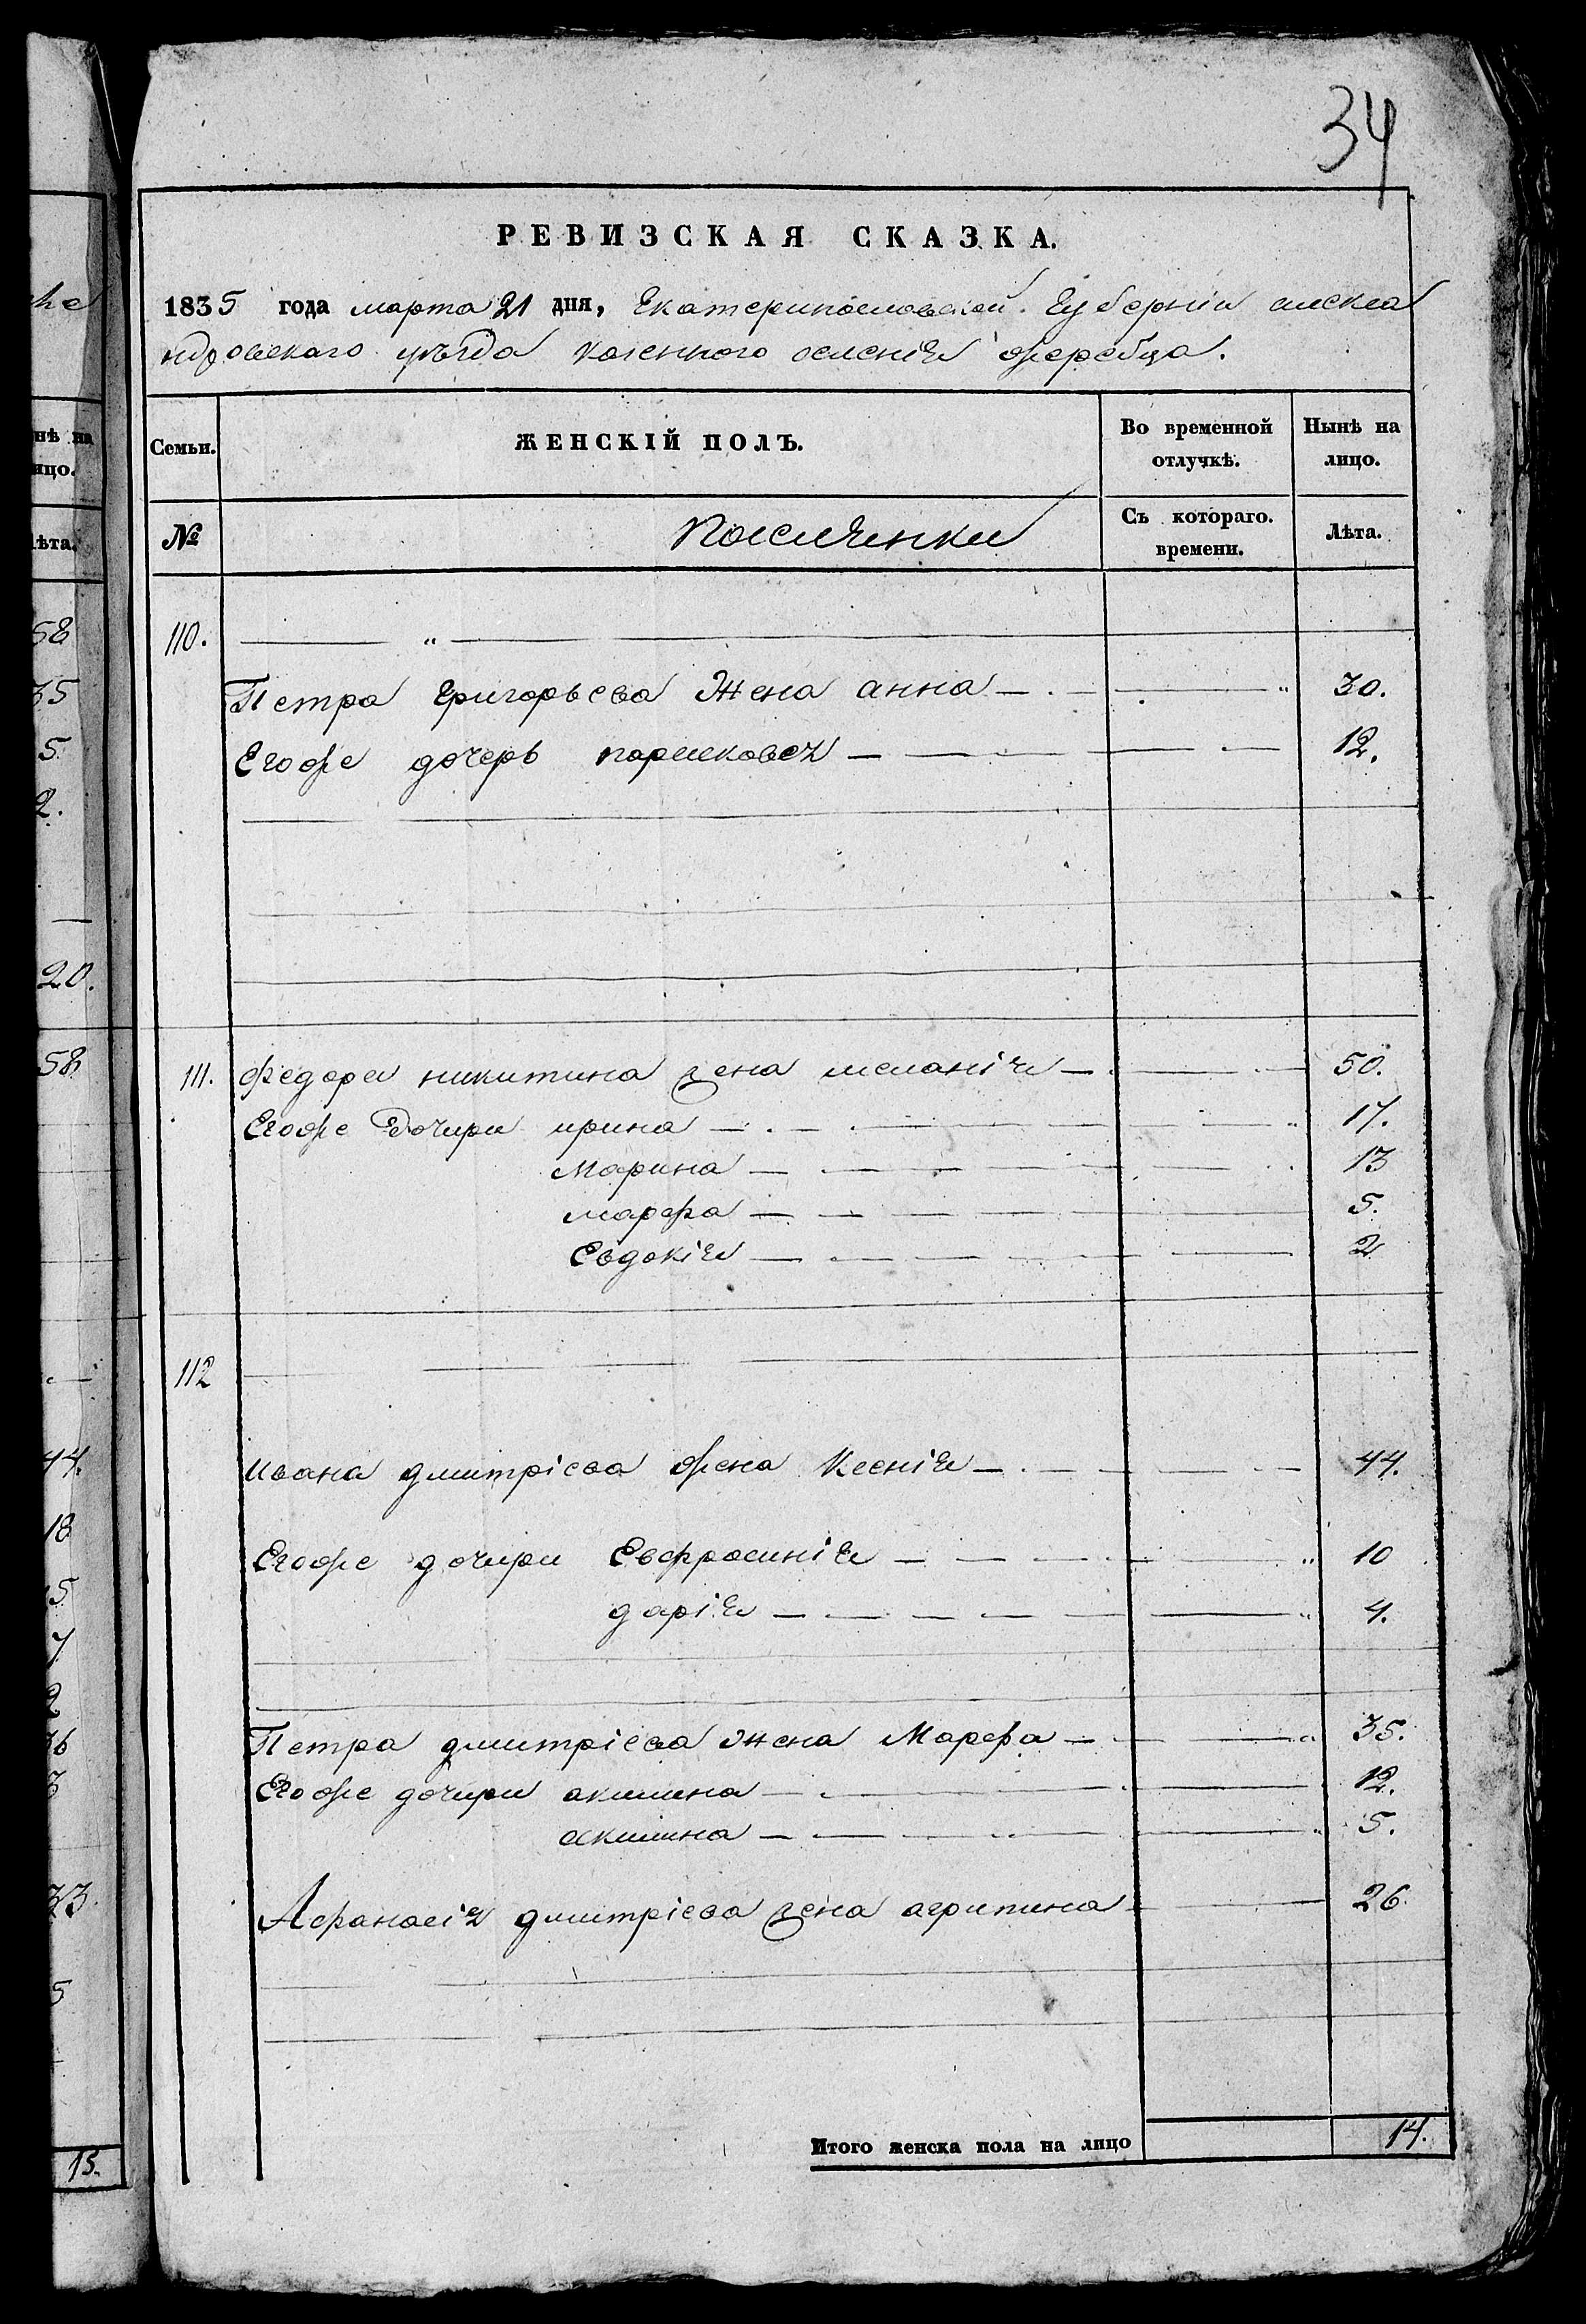 34
РЕВИЗСКАЯ СКАЗКА.
1835 года марта 21 дня, Екатеринославской Губерніи алекса
ндровскаго уѣзда казенного селенія жеребца.
Семьи. ЖЕНСКІЙ ПОЛЪ. Во временной отлучкѣ. Нынѣ на лицо.
№ Поселянки Съ котораго. времени. Лѣта.
110. "
Петра Григорьева Жена анна 30.
Егоже дочерь парасковея 12.
111. Федора никитина жена меланія 50.
Егоже Дочири ирина 17.
Марина 13
марфа 5.
Евдокія 2
112
ивана дмитріева жена Ксенія 44.
Егоже дочири Евфросинія 10
дарія 4.
Петра дмитріева жена Марфа 35.
Егоже дочири акилина 12.
акилина 5.
Афанасія дмитріева жена агрипина 26.
Итого женска пола на лицо 14.
нѣ на
ицо.
ѣта.
58
35
5.
2.
20.
58
44.
18
5
7
2
36
3
33.
5
15.